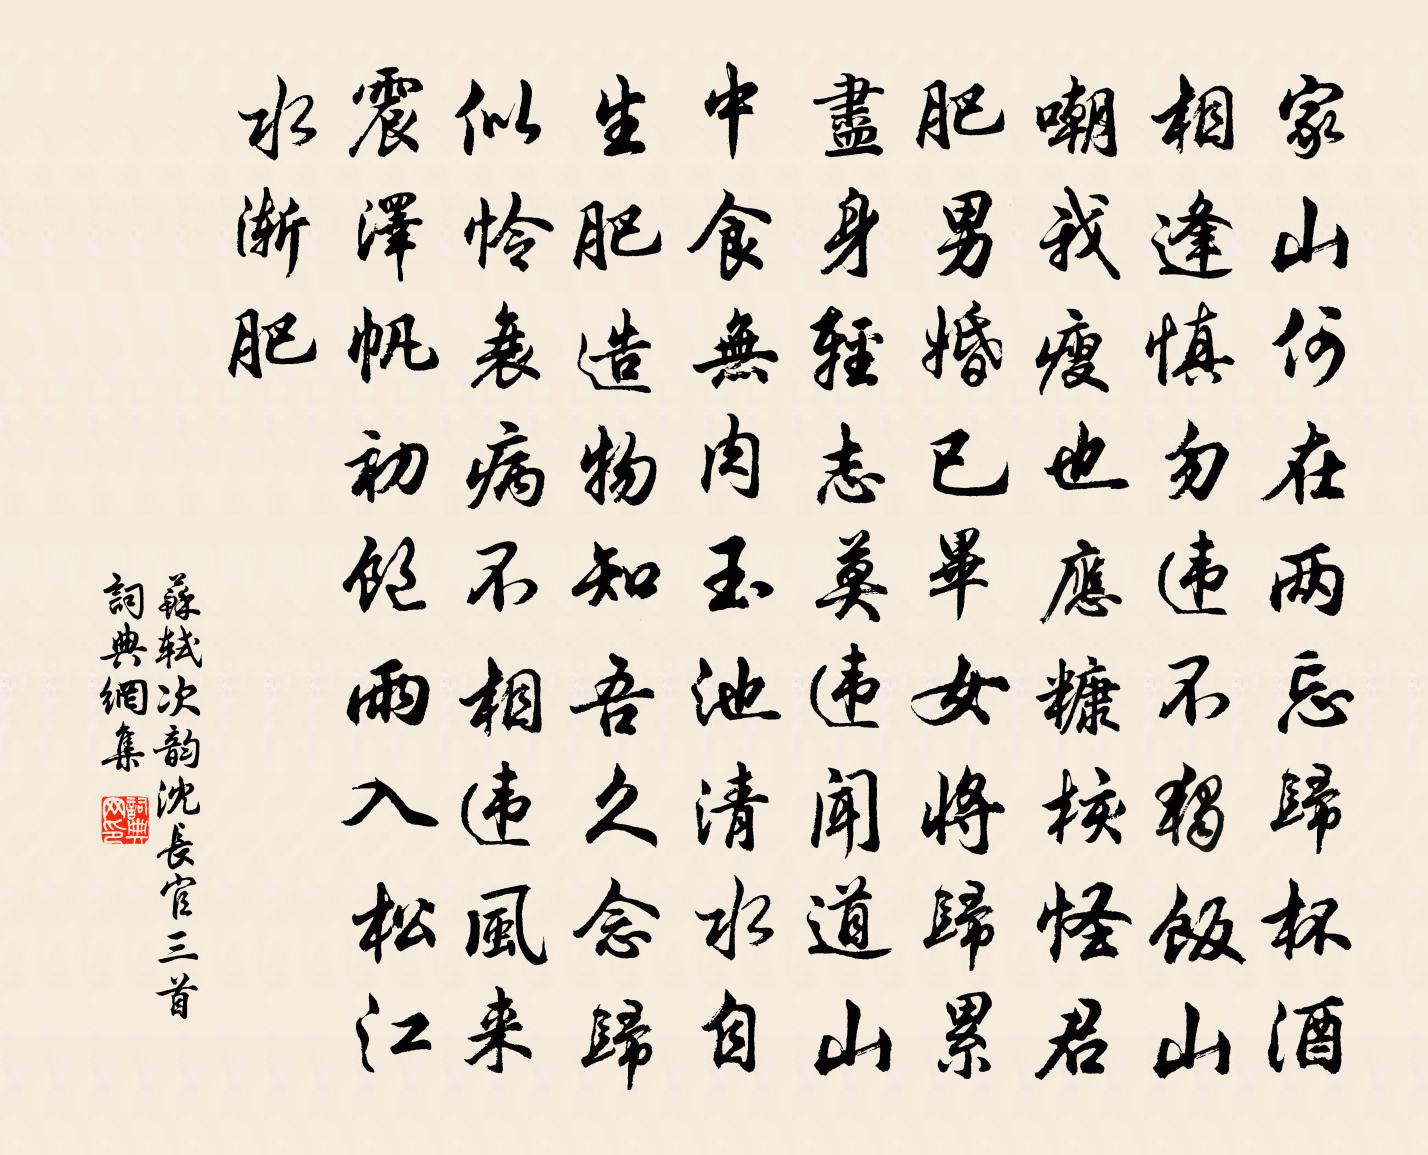 家山何在两忘歸杯酒
相逢慎勿違不獨飯山
嘲我瘦也應糠核怪君
肥男婚已畢女將歸累
盡身輕志莫違聞道山
中食無肉玉池清水自
生肥造物知吾久念歸
似怜衰病不相違風来
震澤帆初飽雨入松江
水漸肥
蘇軾次韵沈長官三首
詞典網集
詞典网印